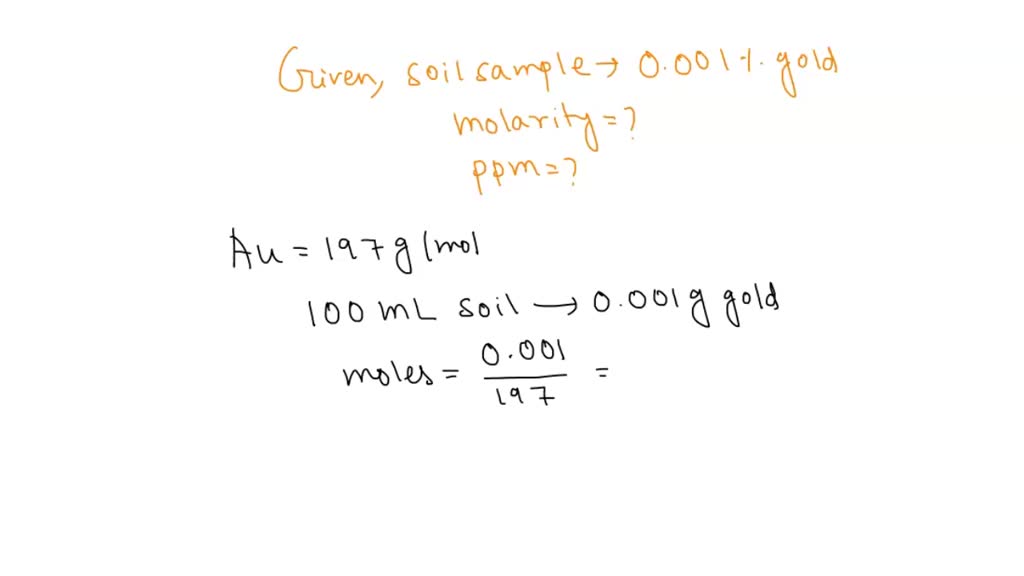 Given, soil sample → 0.001 %. gold
molarity = ?
ppm = ?
Au = 197 g/mol
100 mL soil → 0.001 g gold
moles = 0.001 / 197 =